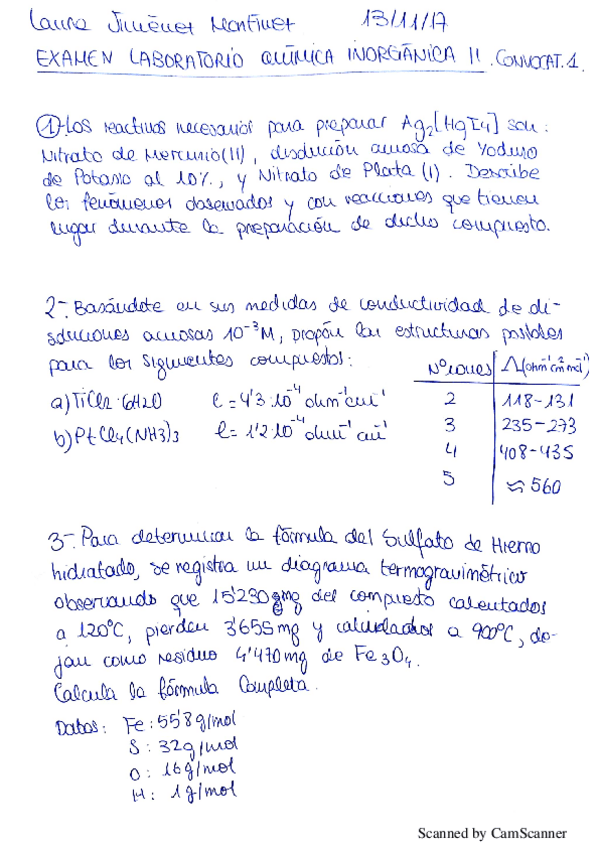 Laura Jiménez Martínez 13/11/17
EXAMEN LABORATORIO QUÍMICA INORGÁNICA II. CONVOCAT. 1.
1)-Los reactivos necesarios para preparar Ag2[HgI4] son:
Nitrato de Mercurio(II), disolución acuosa de Yoduro
de Potasio al 10%, y Nitrato de Plata (I). Describe
los fenómenos observados y las reacciones que tienen
lugar durante la preparación de dicho compuesto.
2-. Basándote en sus medidas de conductividad de di-
soluciones acuosas 10⁻³M, propón las estructuras posibles
para los siguientes compuestos:
Nº iones Λ(ohm⁻¹cm²mol⁻¹)
a) TiCl2·6H2O l = 4'3·10⁻⁴ ohm⁻¹cm⁻¹
b) PtCl4(NH3)3 l = 1'2·10⁻⁴ ohm⁻¹ cm⁻¹
2 118-131
3 235-273
4 408-435
5 ≈ 560
3-. Para determinar la fórmula del Sulfato de Hierro
hidratado, se registra un diagrama termogravimétrico
observando que 15'230 mg del compuesto calentados
a 120ºC, pierden 3'655 mg y calentados a 900ºC, de-
jan como residuo 4'470 mg de Fe3O4.
Calcula la fórmula Completa.
Datos: Fe: 55'8 g/mol
S: 32g/mol
O: 16g/mol
H: 1g/mol
Scanned by CamScanner